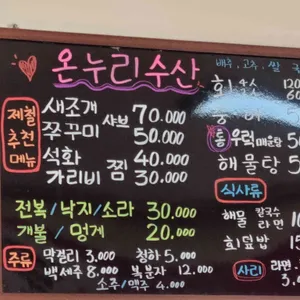 온누리수산
제철 추천 메뉴
새조개 샤브 70.000
쭈꾸미 50.000
석화 찜 40.000
가리비 30.000
전복/낙지/소라 30.000
개불/멍게 20.000
주류
막걸리 3.000 청하 5.000
백세주 8.000 복분자 12.000
소주/맥주 4.000
배추, 고추, 쌀
통 우럭매운탕
해물탕
식사류
해물 칼국수 라면
회덮밥
사리 라면